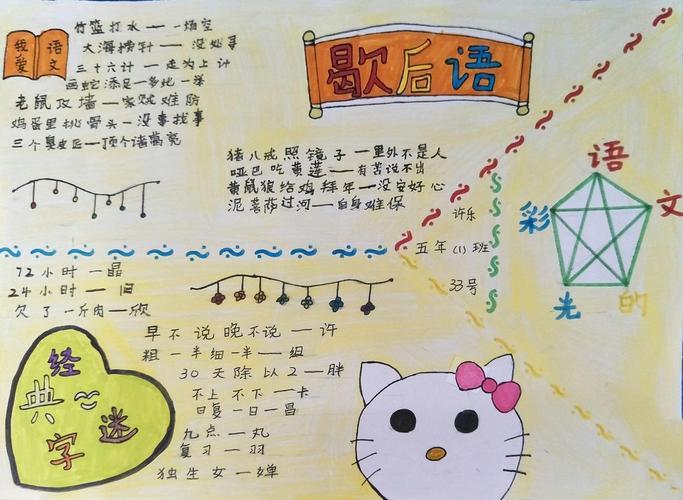 我爱
语文
竹篮打水——一场空
大海捞针——没处寻
三十六计——走为上计
画蛇添足——多此一举
老鼠攻墙——家贼难防
鸡蛋里挑骨头——没事找事
三个臭皮匠——顶个诸葛亮
歇后语
猪八戒照镜子——里外不是人
哑巴吃黄莲——有苦说不出
黄鼠狼给鸡拜年——没安好心
泥菩萨过河——自身难保
许乐
五年(1)班
33号
语
文
的
光
彩
72小时——晶
24小时——旧
欠了一斤肉——欣
早不说晚不说——许
粗一半细一半——组
30天除以2——胖
不上不下——卡
日复一日——昌
九点——丸
复习——羽
独生女——婵
经典字迷